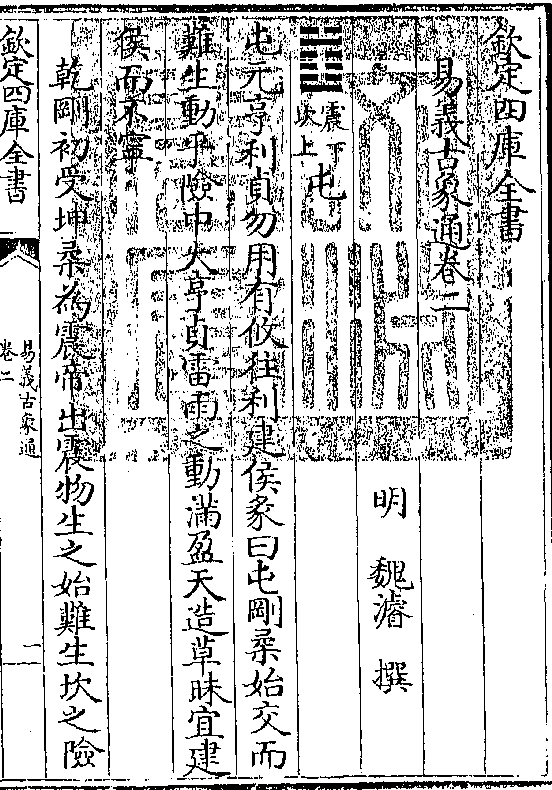 欽定四庫全書
易義古象通卷二
明 魏濬 撰
震下坎上 屯
屯元亨利貞勿用有攸往利建侯彖曰屯剛柔始交而
難生動乎險中大亨貞雷雨之動滿盈天造草昧宜建
侯而不寧
乾剛初受坤柔為震帝出震物生之始難生坎之險
欽定四庫全書
易義古象通
卷二
一